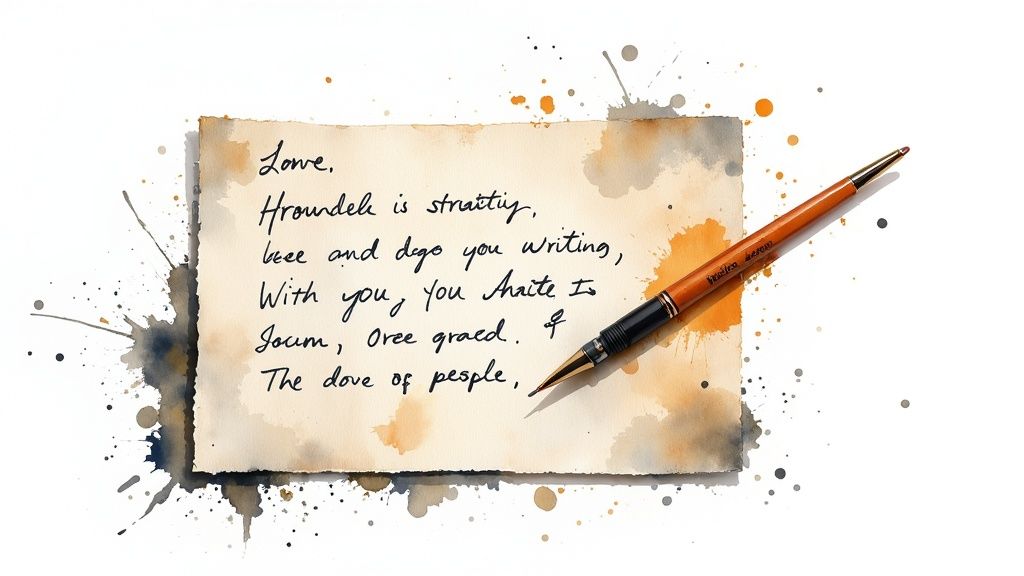 Lowe.
Hroundek is straitiy,
beee and dego you writing,
With you, you Anaite Is
Jocum, Oree graed.
The dove of people,